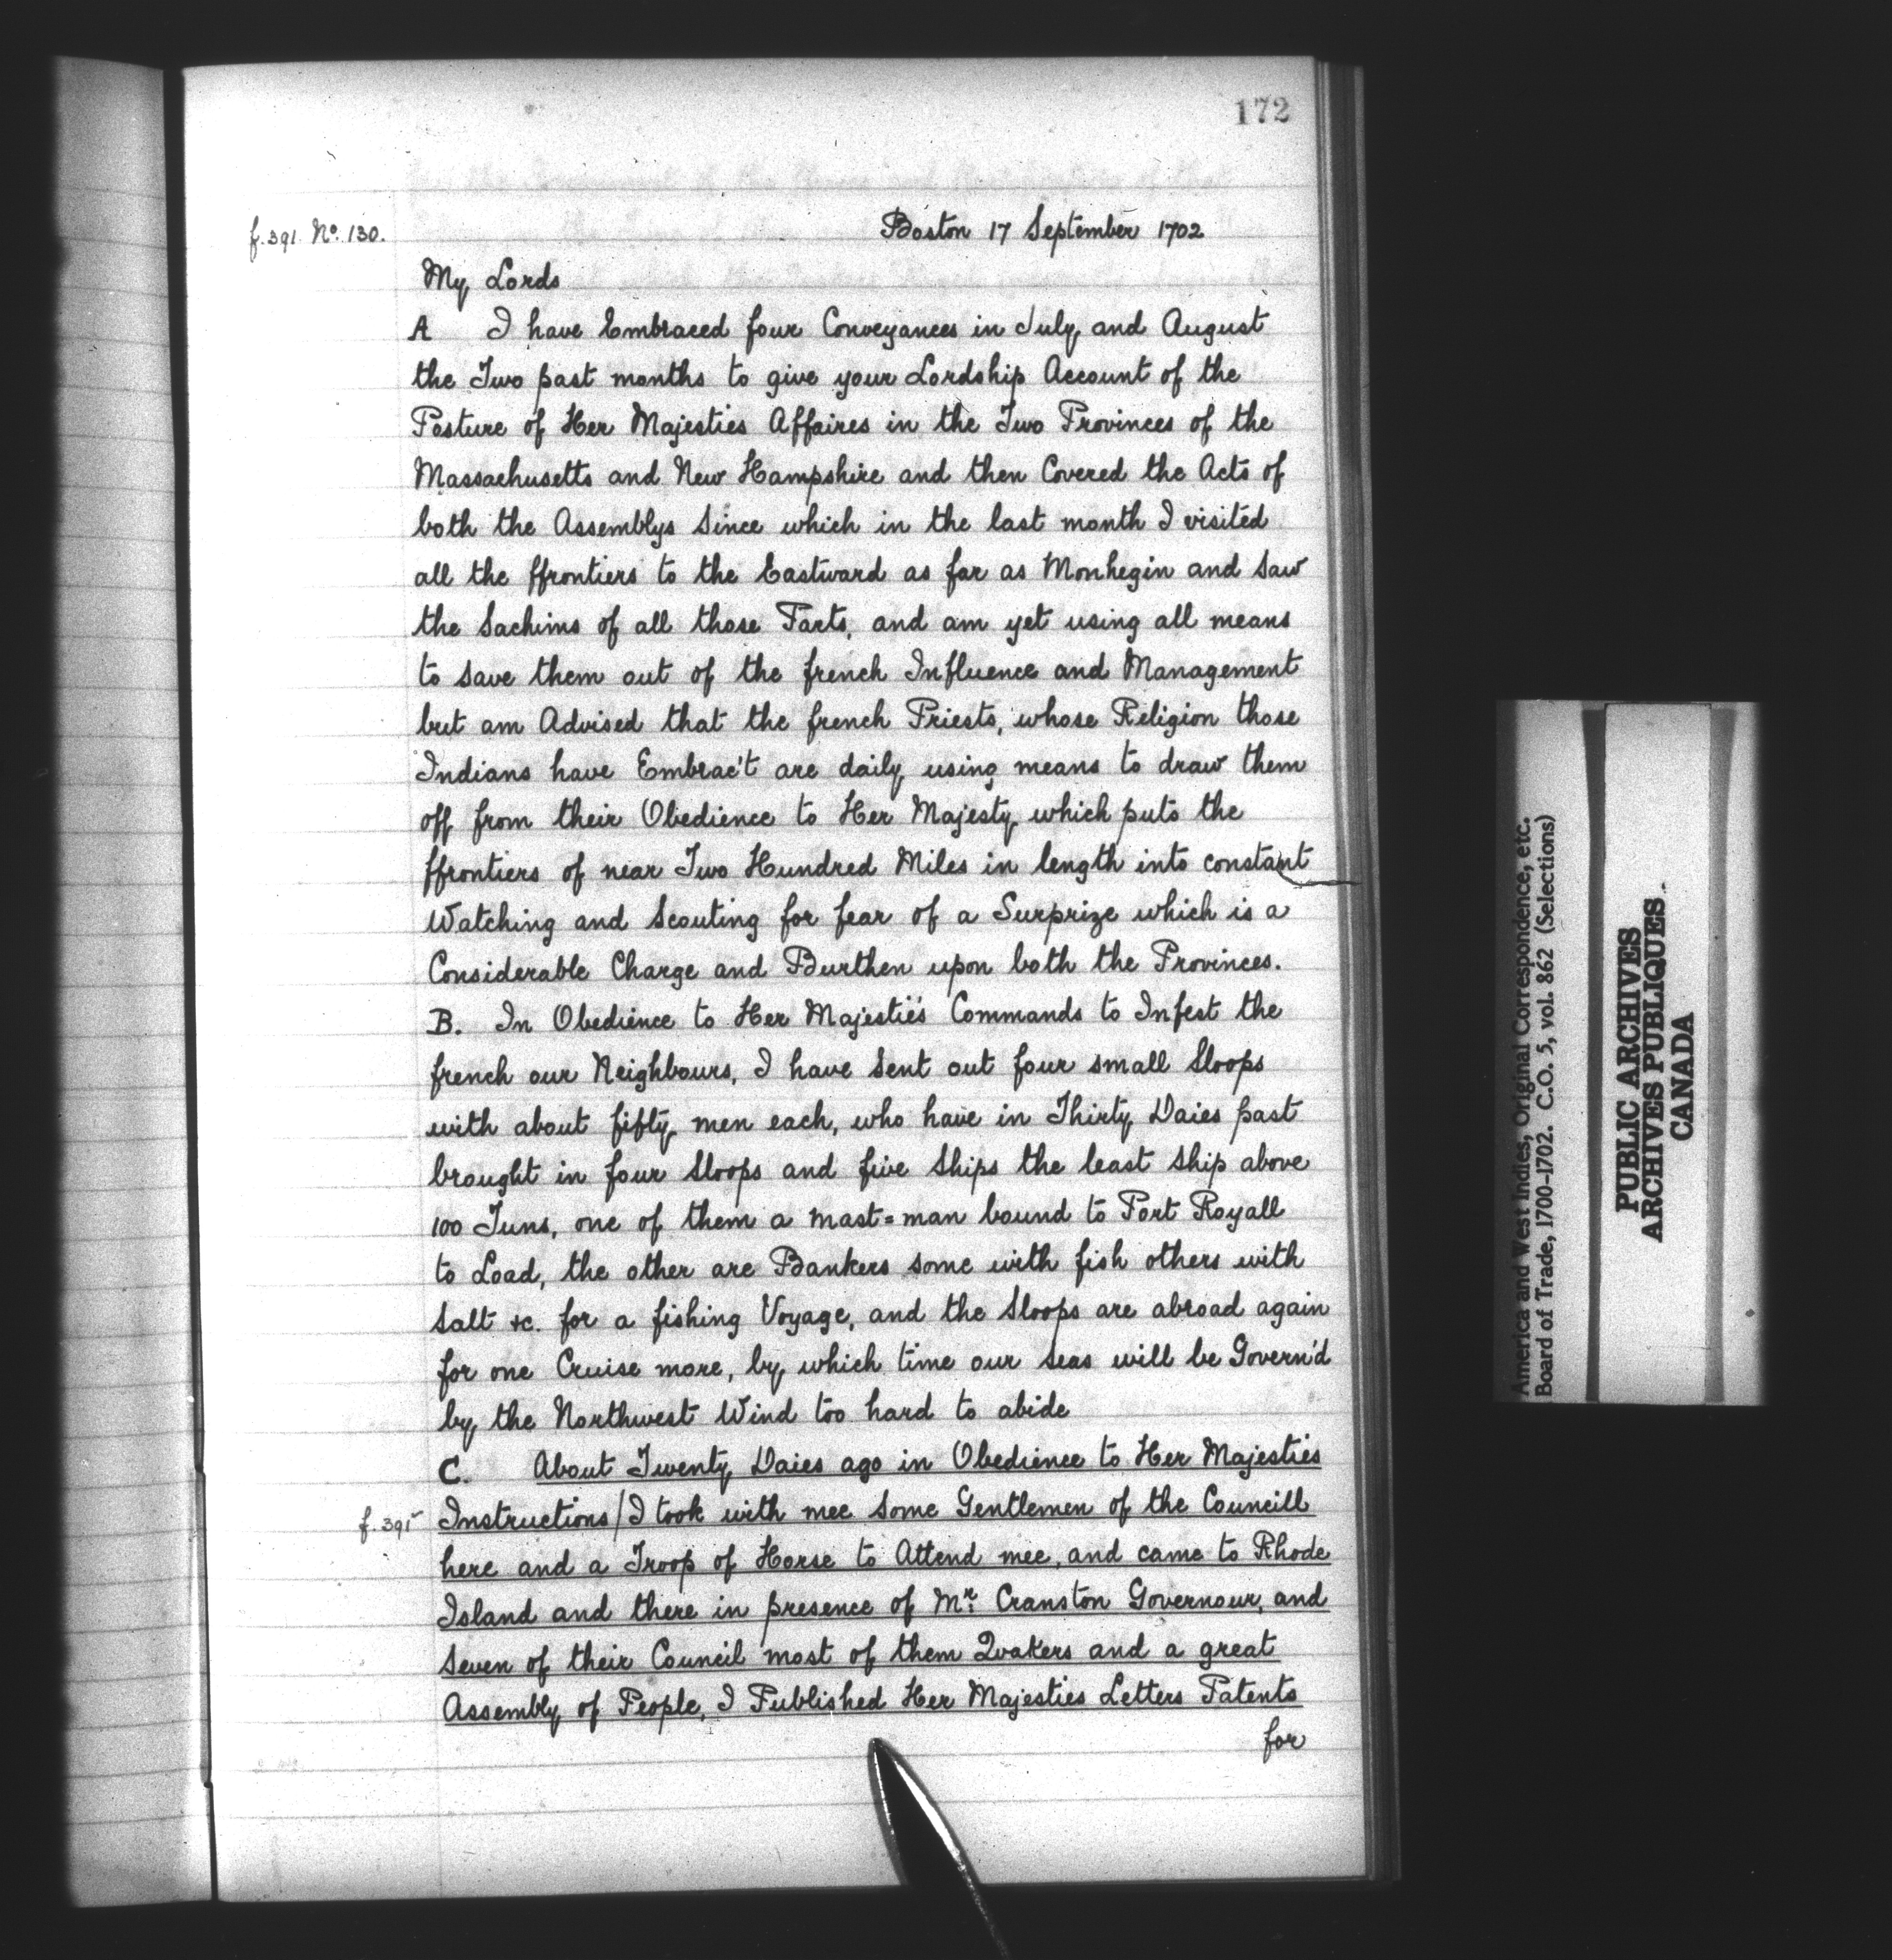 172
f.391. No. 130.
Boston 17 September 1702
My Lords
A I have Embraced four Conveyances in July and August
the Two past months to give your Lordship Account of the
Posture of Her Majesties Affaires in the Two Provinces of the
Massachusetts and New Hampshire and then Covered the Acts of
both the Assemblys Since which in the last month I visited
all the ffrontiers to the Eastward as far as Monhegin and Saw
the Sachims of all those Parts, and am yet using all means
to save them out of the french Influence and Management
but am Advised that the french Priests, whose Religion those
Indians have Embrac't are daily using means to draw them
off from their Obedience to Her Majesty which puts the
ffrontiers of near Two Hundred Miles in length into constant
Watching and Scouting for fear of a Surprize which is a
Considerable Charge and Burthen upon both the Provinces.
B. In Obedience to Her Majestie's Commands to Infest the
french our Neighbours, I have Sent out four small Sloops
with about fifty men each, who have in Thirty Daies past
brought in four Sloops and five Ships the least Ship above
100 Tuns, one of them a mast=man bound to Port Royall
to Load, the other are Bankers some with fish others with
Salt &c. for a fishing Voyage, and the Sloops are abroad again
for one Cruise more, by which time our Seas will be Govern'd
by the Northwest Wind too hard to abide
C. About Twenty Daies ago in Obedience to Her Majesties
f.391 Instructions/I took with mee some Gentlemen of the Councill
here and a Troop of Horse to Attend mee, and came to Rhode
Island and there in presence of Mr. Cranston Governour, and
Seven of their Council most of them Quakers and a great
Assembly of People, I Published Her Majesties Letters Patents
for
America and West Indies, Original Correspondence, etc.
Board of Trade, 1700-1702. C.O. 5, vol. 862 (Selections)
PUBLIC ARCHIVES
ARCHIVES PUBLIQUES
CANADA